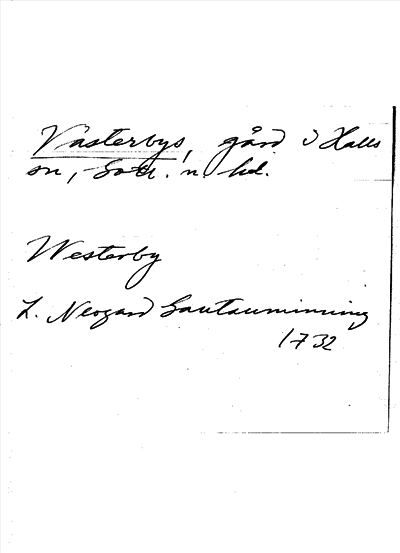 Västerbys, gård i Halls
sn, Gotl. n. hd.
Westerby
L. Neogard Gautauminning
1732